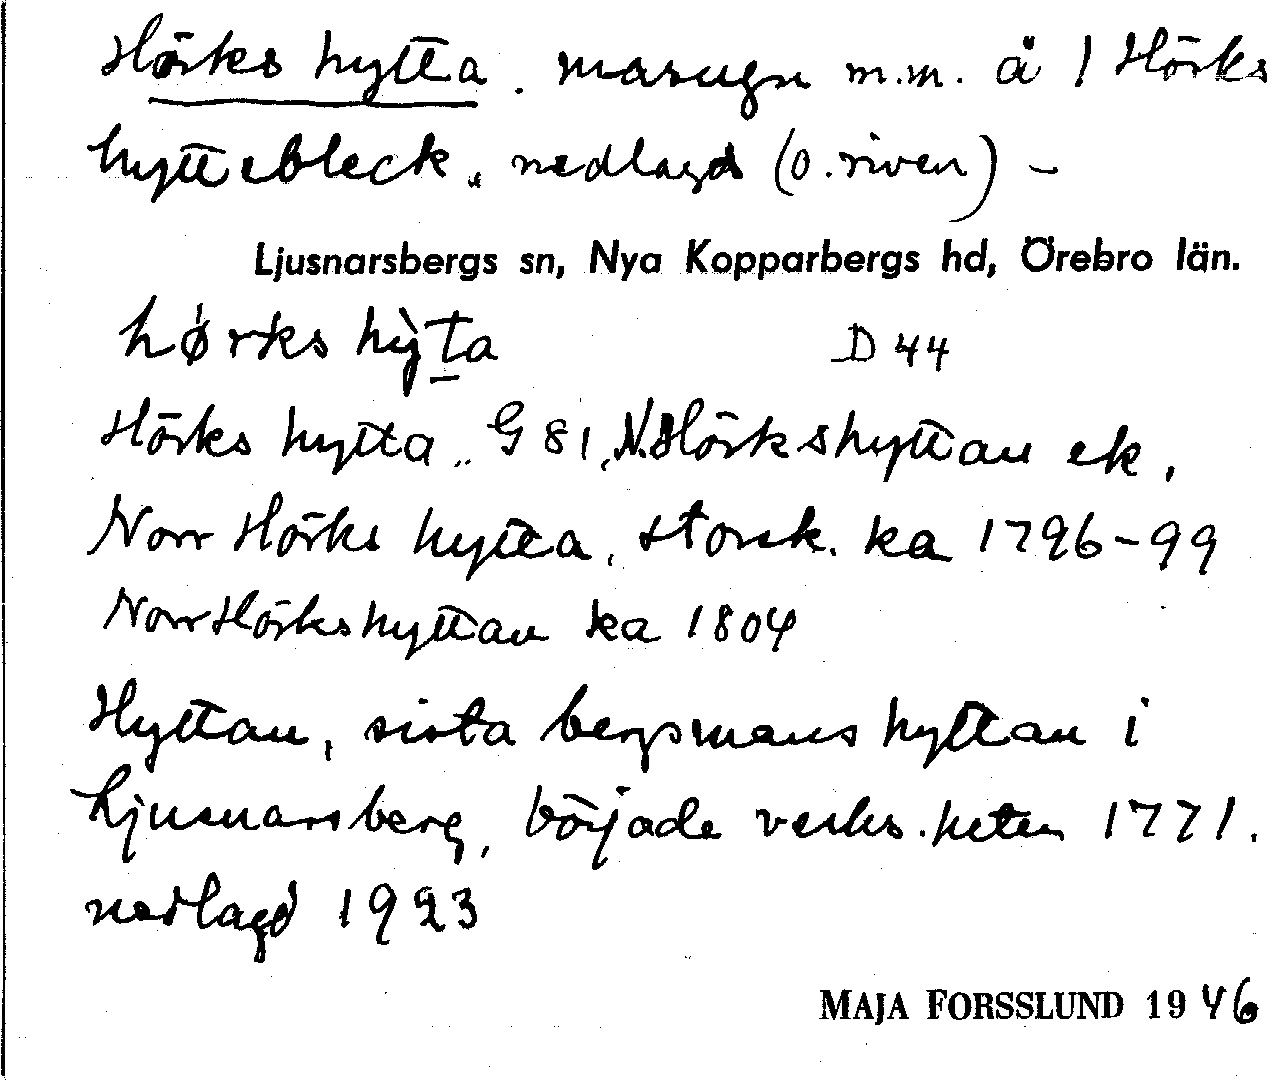 Hörks hytta. masugn m.m. å 1 Hörks
hyttebleck, nedlagd (o. riven) –
Ljusnarsbergs sn, Nya Kopparbergs hd, Örebro län.
hørks hỳta D 44
Hörks hytta, G 81, N. Hörkshyttan ek,
Norr Hörks hytta, storsk. ka 1796-99
Norr Hörkshyttan ka 1804
Hyttan, sista bergsmanshyttan i
Ljusnarsberg, började verks.heten 1771.
nedlagd 1923
MAJA FORSSLUND 1946